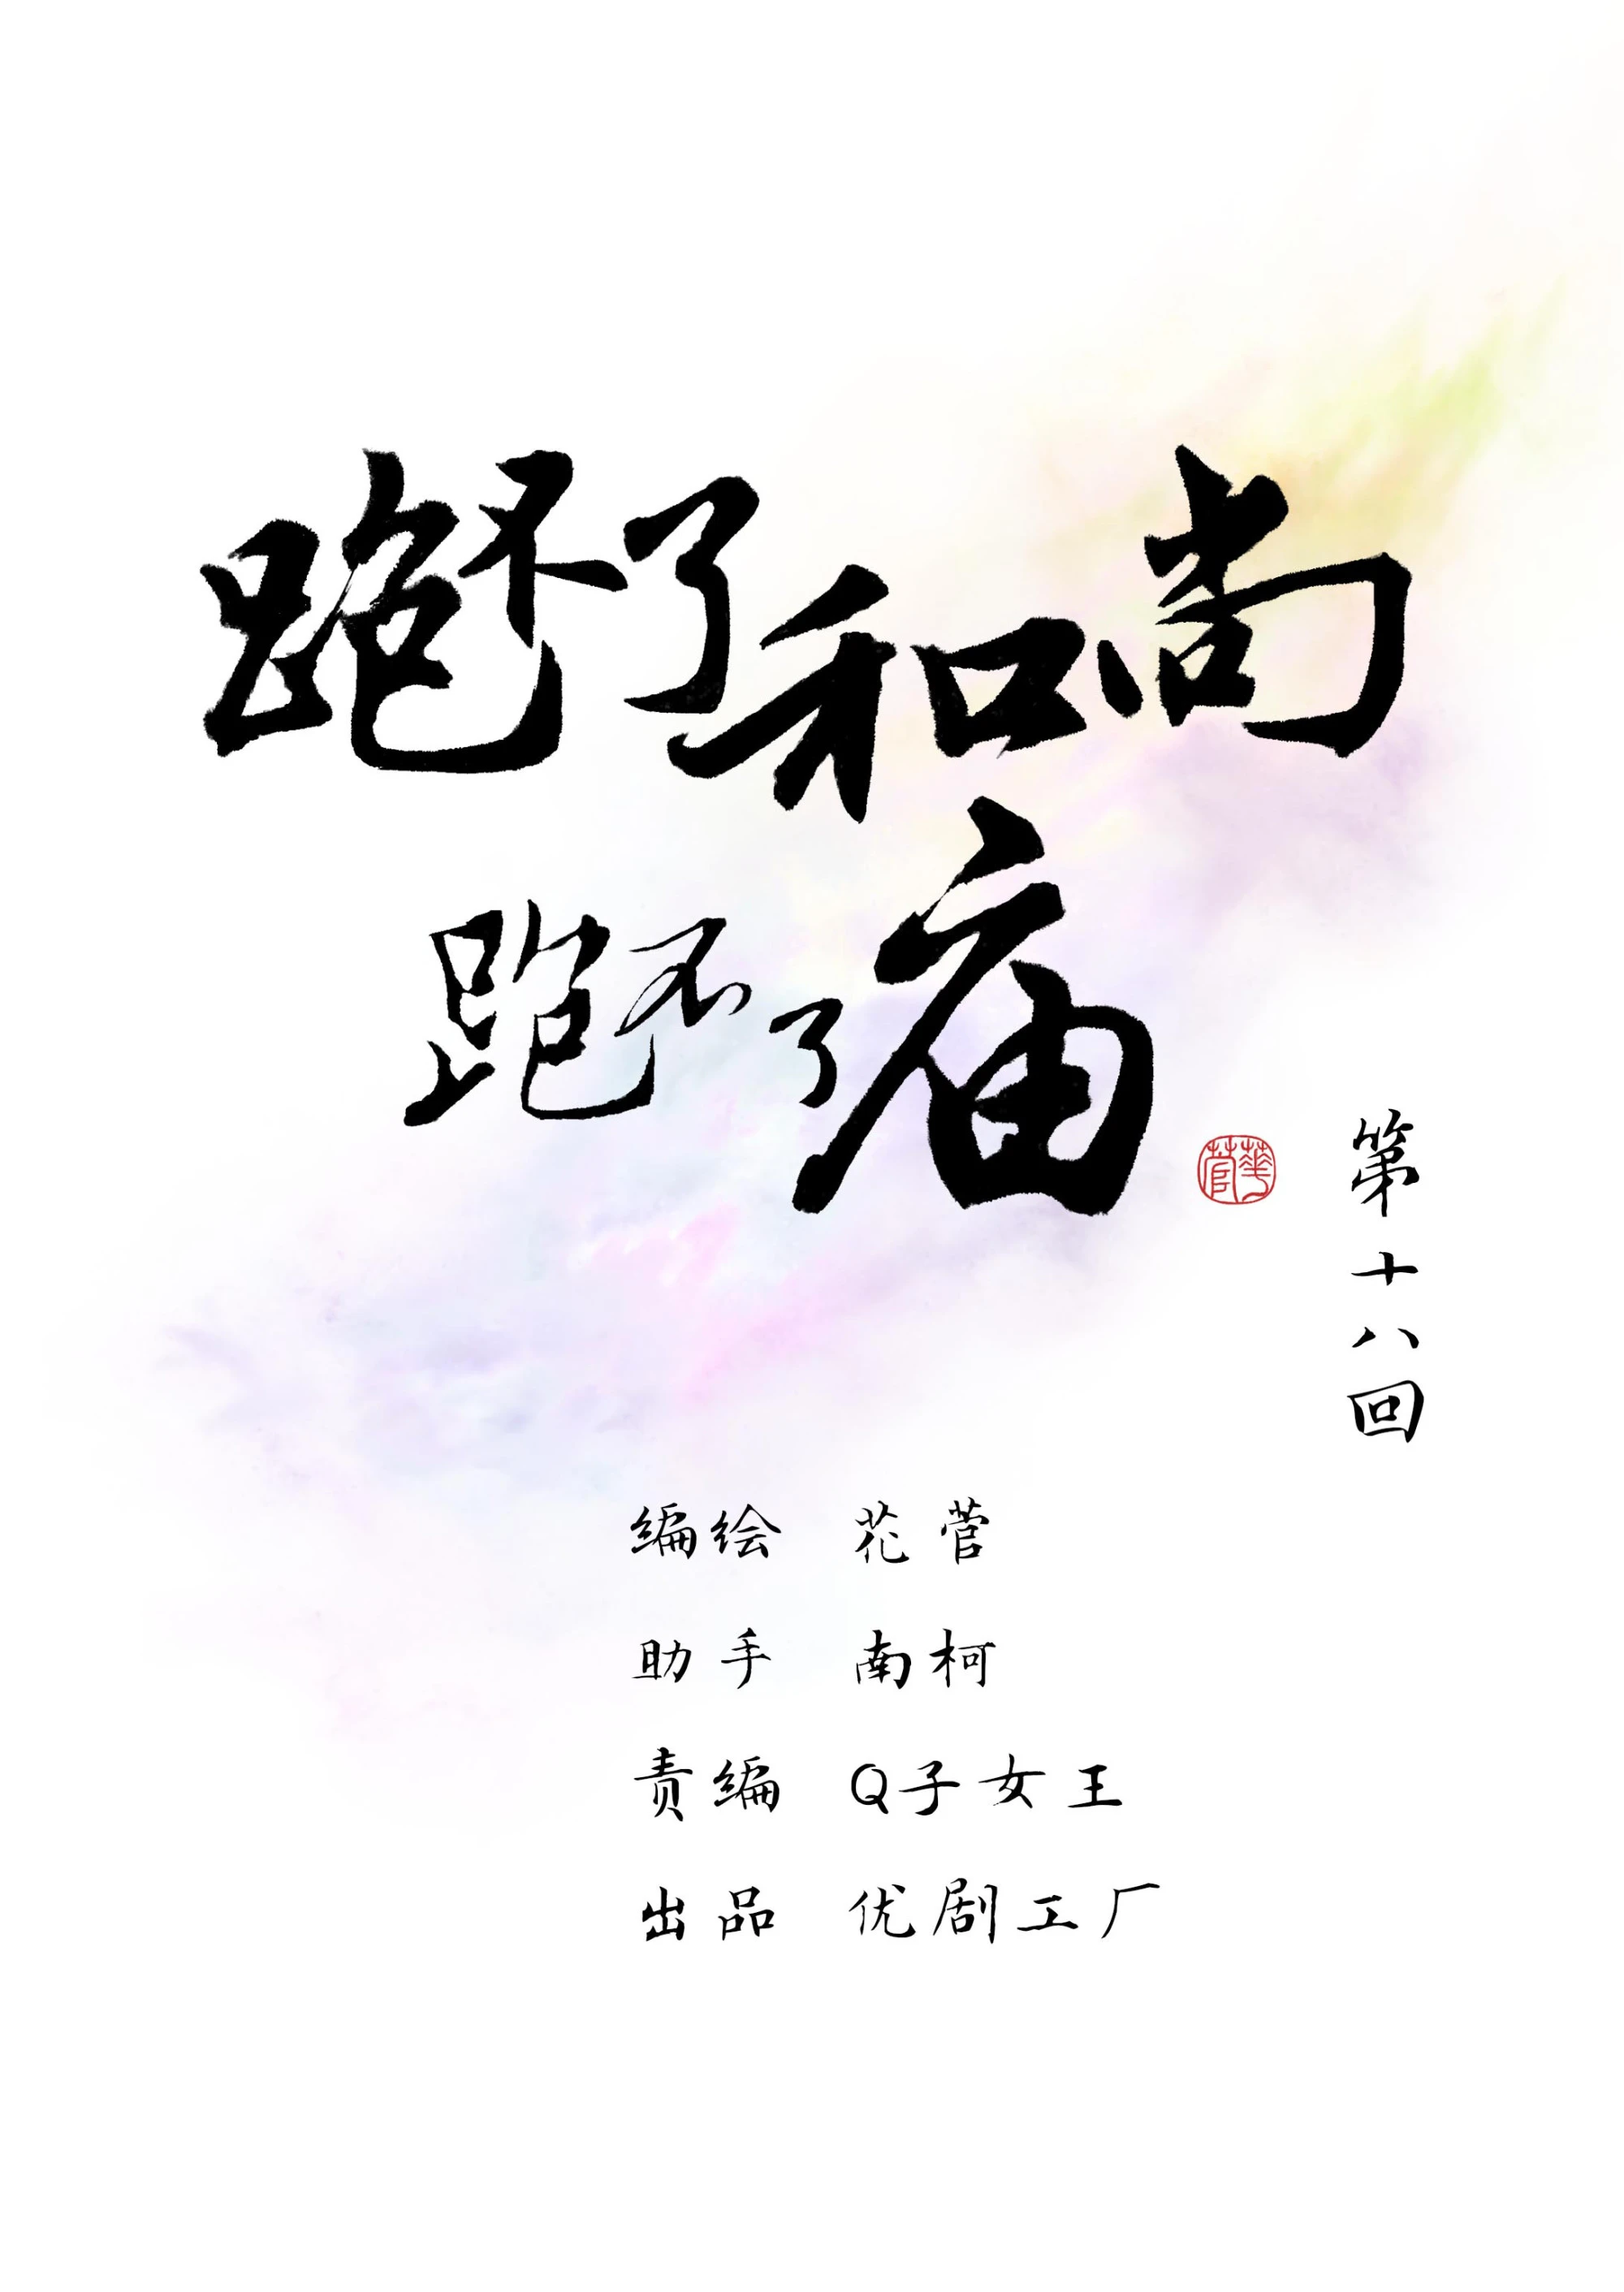 跑不了和尚
跑不了庙
華菅
第十八回
编绘 花菅
助手 南柯
责编 Q子女王
出品 优剧工厂